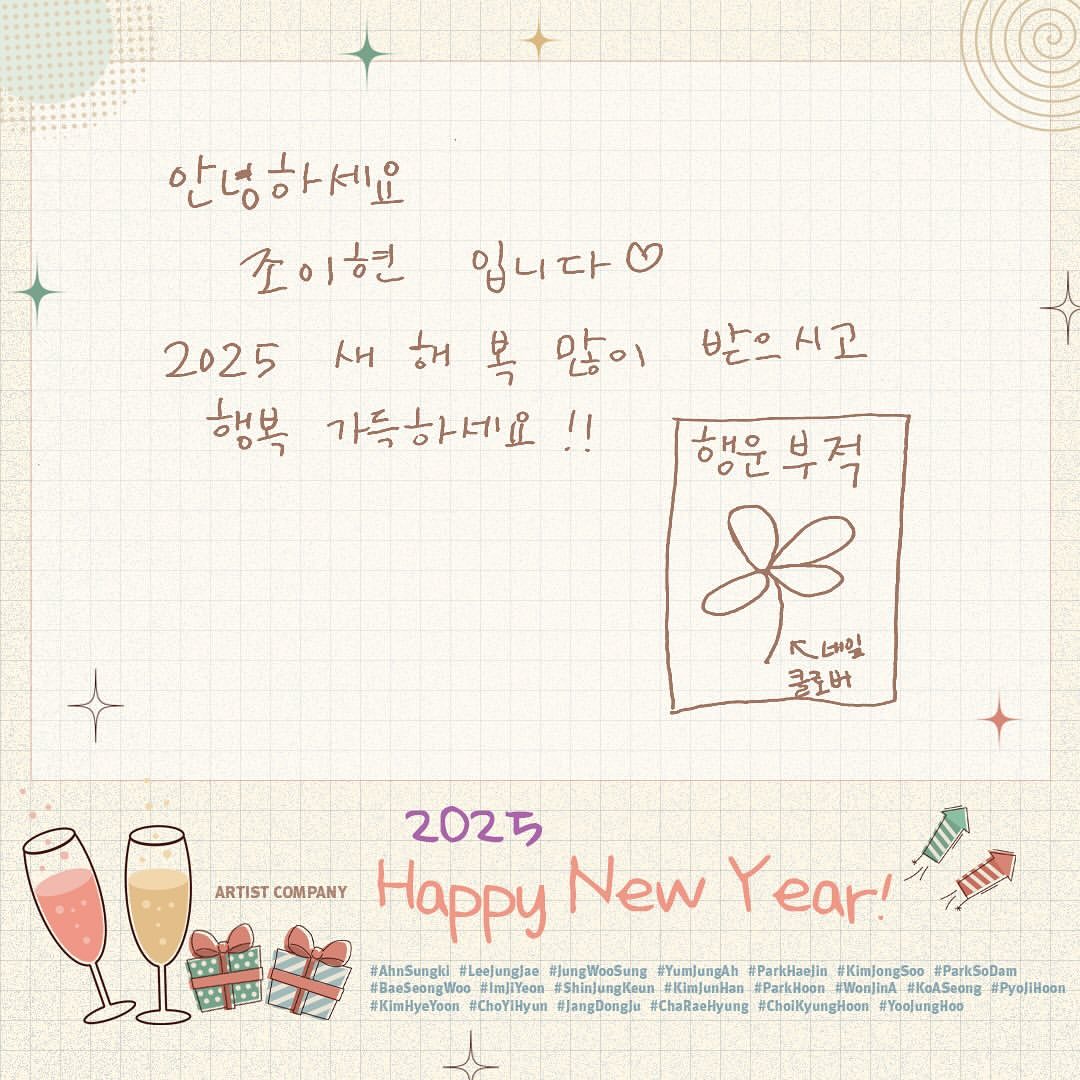 안녕하세요
조이현 입니다♡
2025 새해 복 많이 받으시고
행복 가득하세요!!
행운 부적
↖네잎
클로버
2025
ARTIST COMPANY
Happy New Year!
#AhnSungki #LeeJungJae #JungWooSung #YumJungAh #ParkHaeJin #KimJongSoo #ParkSoDam
#BaeSeongWoo #ImJiYeon #ShinJungKeun #KimJunHan #ParkHoon #WonJinA #KoASeong #PyoJiHoon
#KimHyeYoon #ChoYiHyun #JangDongJu #ChaRaeHyung #ChoiKyungHoon #YooJungHoo